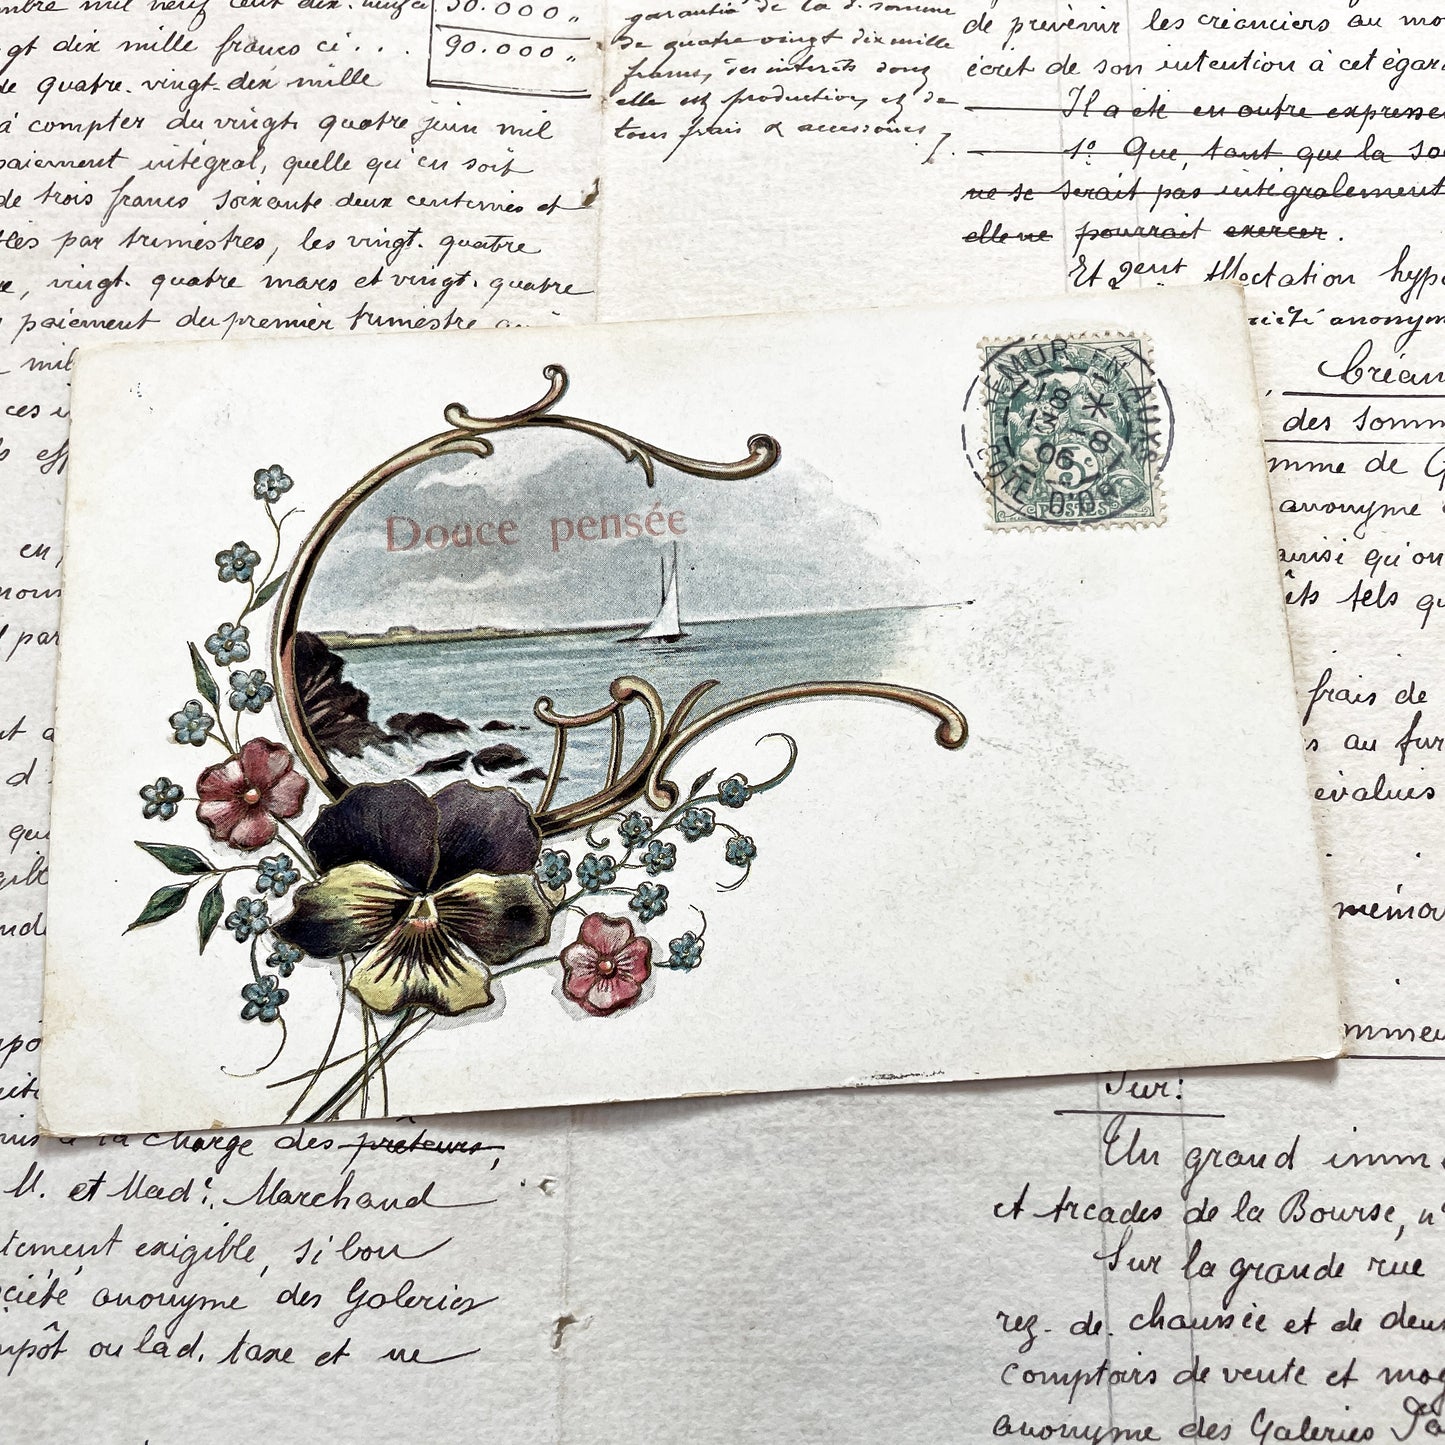 mil neuf cent dix. neuf
gt dix mille francs ci...
de quatre. vingt. dix mille
à compter du vingt quatre juin mil
paiement intégral, quelle qu'en soit
de trois francs soixante deux centimes et
par trimestres, les vingt. quatre
vingt. quatre mars et vingt. quatre
paiement du premier trimestre
mil
ces
en,
par
d
50.000 "
90.000 "
garantie de la d. somme
de quatre vingt dix mille
francs, des intérêts dont
elle est productive, et de
tous frais & accessoires /.
de prévenir les créanciers au mo
écrit de son intention à cet égar
Il a été en outre expresse
1º Que, tant que la So
ne se serait pas intégralement
elle ne pourrait exercer.
Et 2ent Affectation hyp
ciété anonym
Créan
des somm
mme de
anonyme
qu'on
ts tels qu
frais de
au fur
évalués
mémo
mmeu
SEMUR EN AUXOIS
18 *
3 - 8
06
COTE D'OR
5c
POSTES
Douce pensée
à la charge des prêteurs,
M. et Made. Marchand
tement exigible, si bon
ciété anonyme des Galeries
mpôt ou lad. taxe et ne
Sur:
Un grand imm
et Arcades de la Bourse, nº
Sur la grande rue
rez. de. chaussée et de deux
comptoirs de vente et mag
anonyme des Galeries Pa